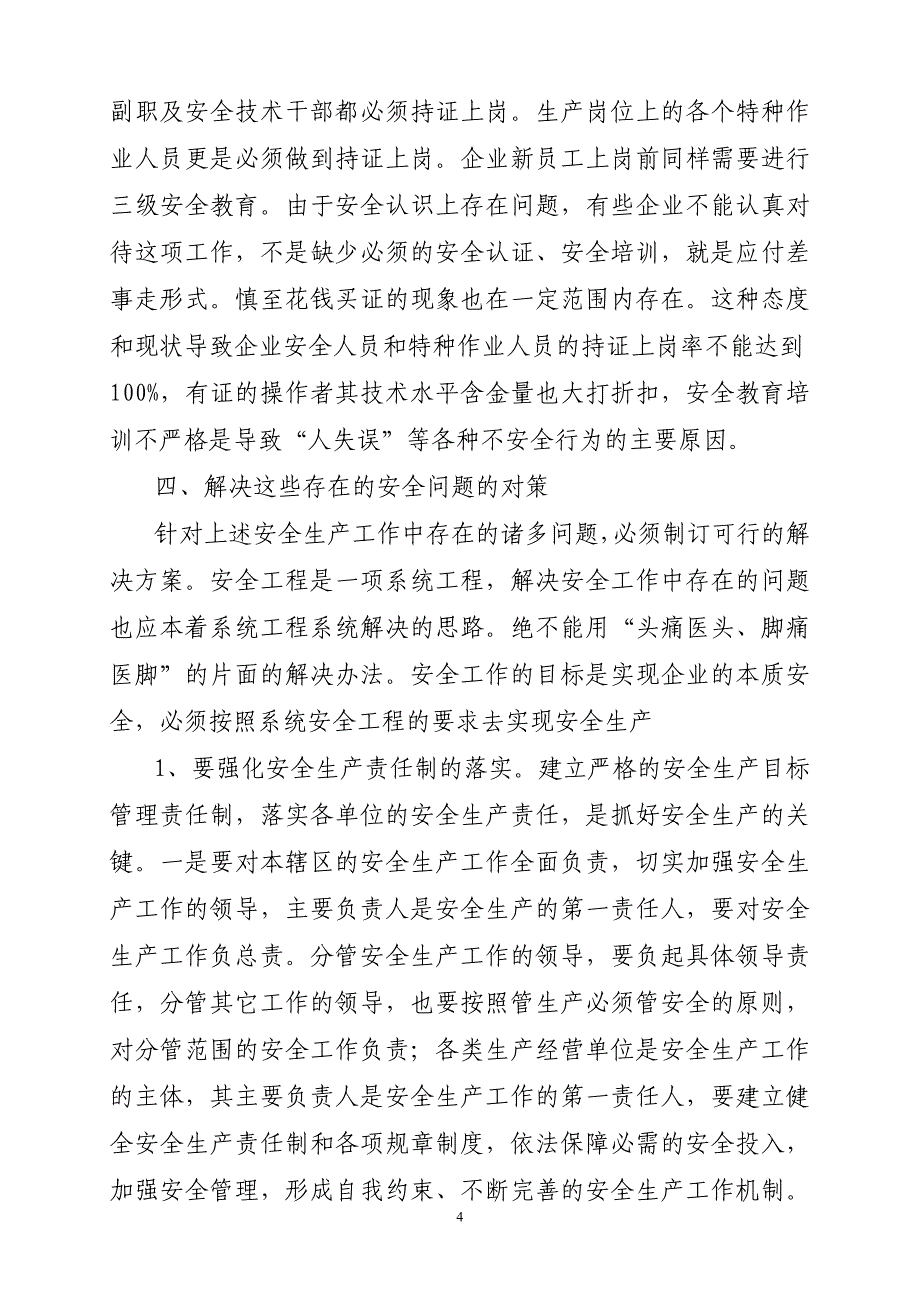 副职及安全技术干部都必须持证上岗。生产岗位上的各个特种作
业人员更是必须做到持证上岗。企业新员工上岗前同样需要进行
三级安全教育。由于安全认识上存在问题，有些企业不能认真对
待这项工作，不是缺少必须的安全认证、安全培训，就是应付差
事走形式。慎至花钱买证的现象也在一定范围内存在。这种态度
和现状导致企业安全人员和特种作业人员的持证上岗率不能达到
100%，有证的操作者其技术水平含金量也大打折扣，安全教育培
训不严格是导致“人失误”等各种不安全行为的主要原因。
四、解决这些存在的安全问题的对策
针对上述安全生产工作中存在的诸多问题，必须制订可行的解
决方案。安全工程是一项系统工程，解决安全工作中存在的问题
也应本着系统工程系统解决的思路。绝不能用“头痛医头、脚痛
医脚”的片面的解决办法。安全工作的目标是实现企业的本质安
全，必须按照系统安全工程的要求去实现安全生产
1、要强化安全生产责任制的落实。建立严格的安全生产目标
管理责任制，落实各单位的安全生产责任，是抓好安全生产的关
键。一是要对本辖区的安全生产工作全面负责，切实加强安全生
产工作的领导，主要负责人是安全生产的第一责任人，要对安全
生产工作负总责。分管安全生产工作的领导，要负起具体领导责
任，分管其它工作的领导，也要按照管生产必须管安全的原则，
对分管范围的安全工作负责；各类生产经营单位是安全生产工作
的主体，其主要负责人是安全生产工作的第一责任人，要建立健
全安全生产责任制和各项规章制度，依法保障必需的安全投入，
加强安全管理，形成自我约束、不断完善的安全生产工作机制。
4